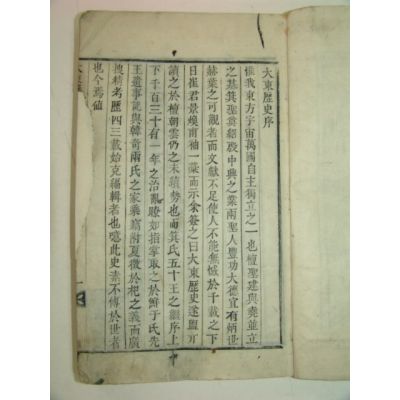 大東歷史序
惟我東方宇宙萬國自主獨立之一也檀聖建與堯並立
之基箕聖奠紹殷中興之業兩聖人豐功大德宜有炳世
赫葉之可觀者而文獻不足使人不能無憾於千載之下
日崔君景煥甫袖一藁而示余卷之曰大東歷史遂盥
讀之於檀朝雲仍之末積勢也而箕氏五十王之繼序上
下千百三十有一年之治亂瞭如指掌取之於鮮于氏先
王遺事記與韓奇兩氏之家乘寓附夏微於杞之義而廣
搜精考歷四三載始克編輯者也噫此史素不傳於世者
也今焉値
大東歷